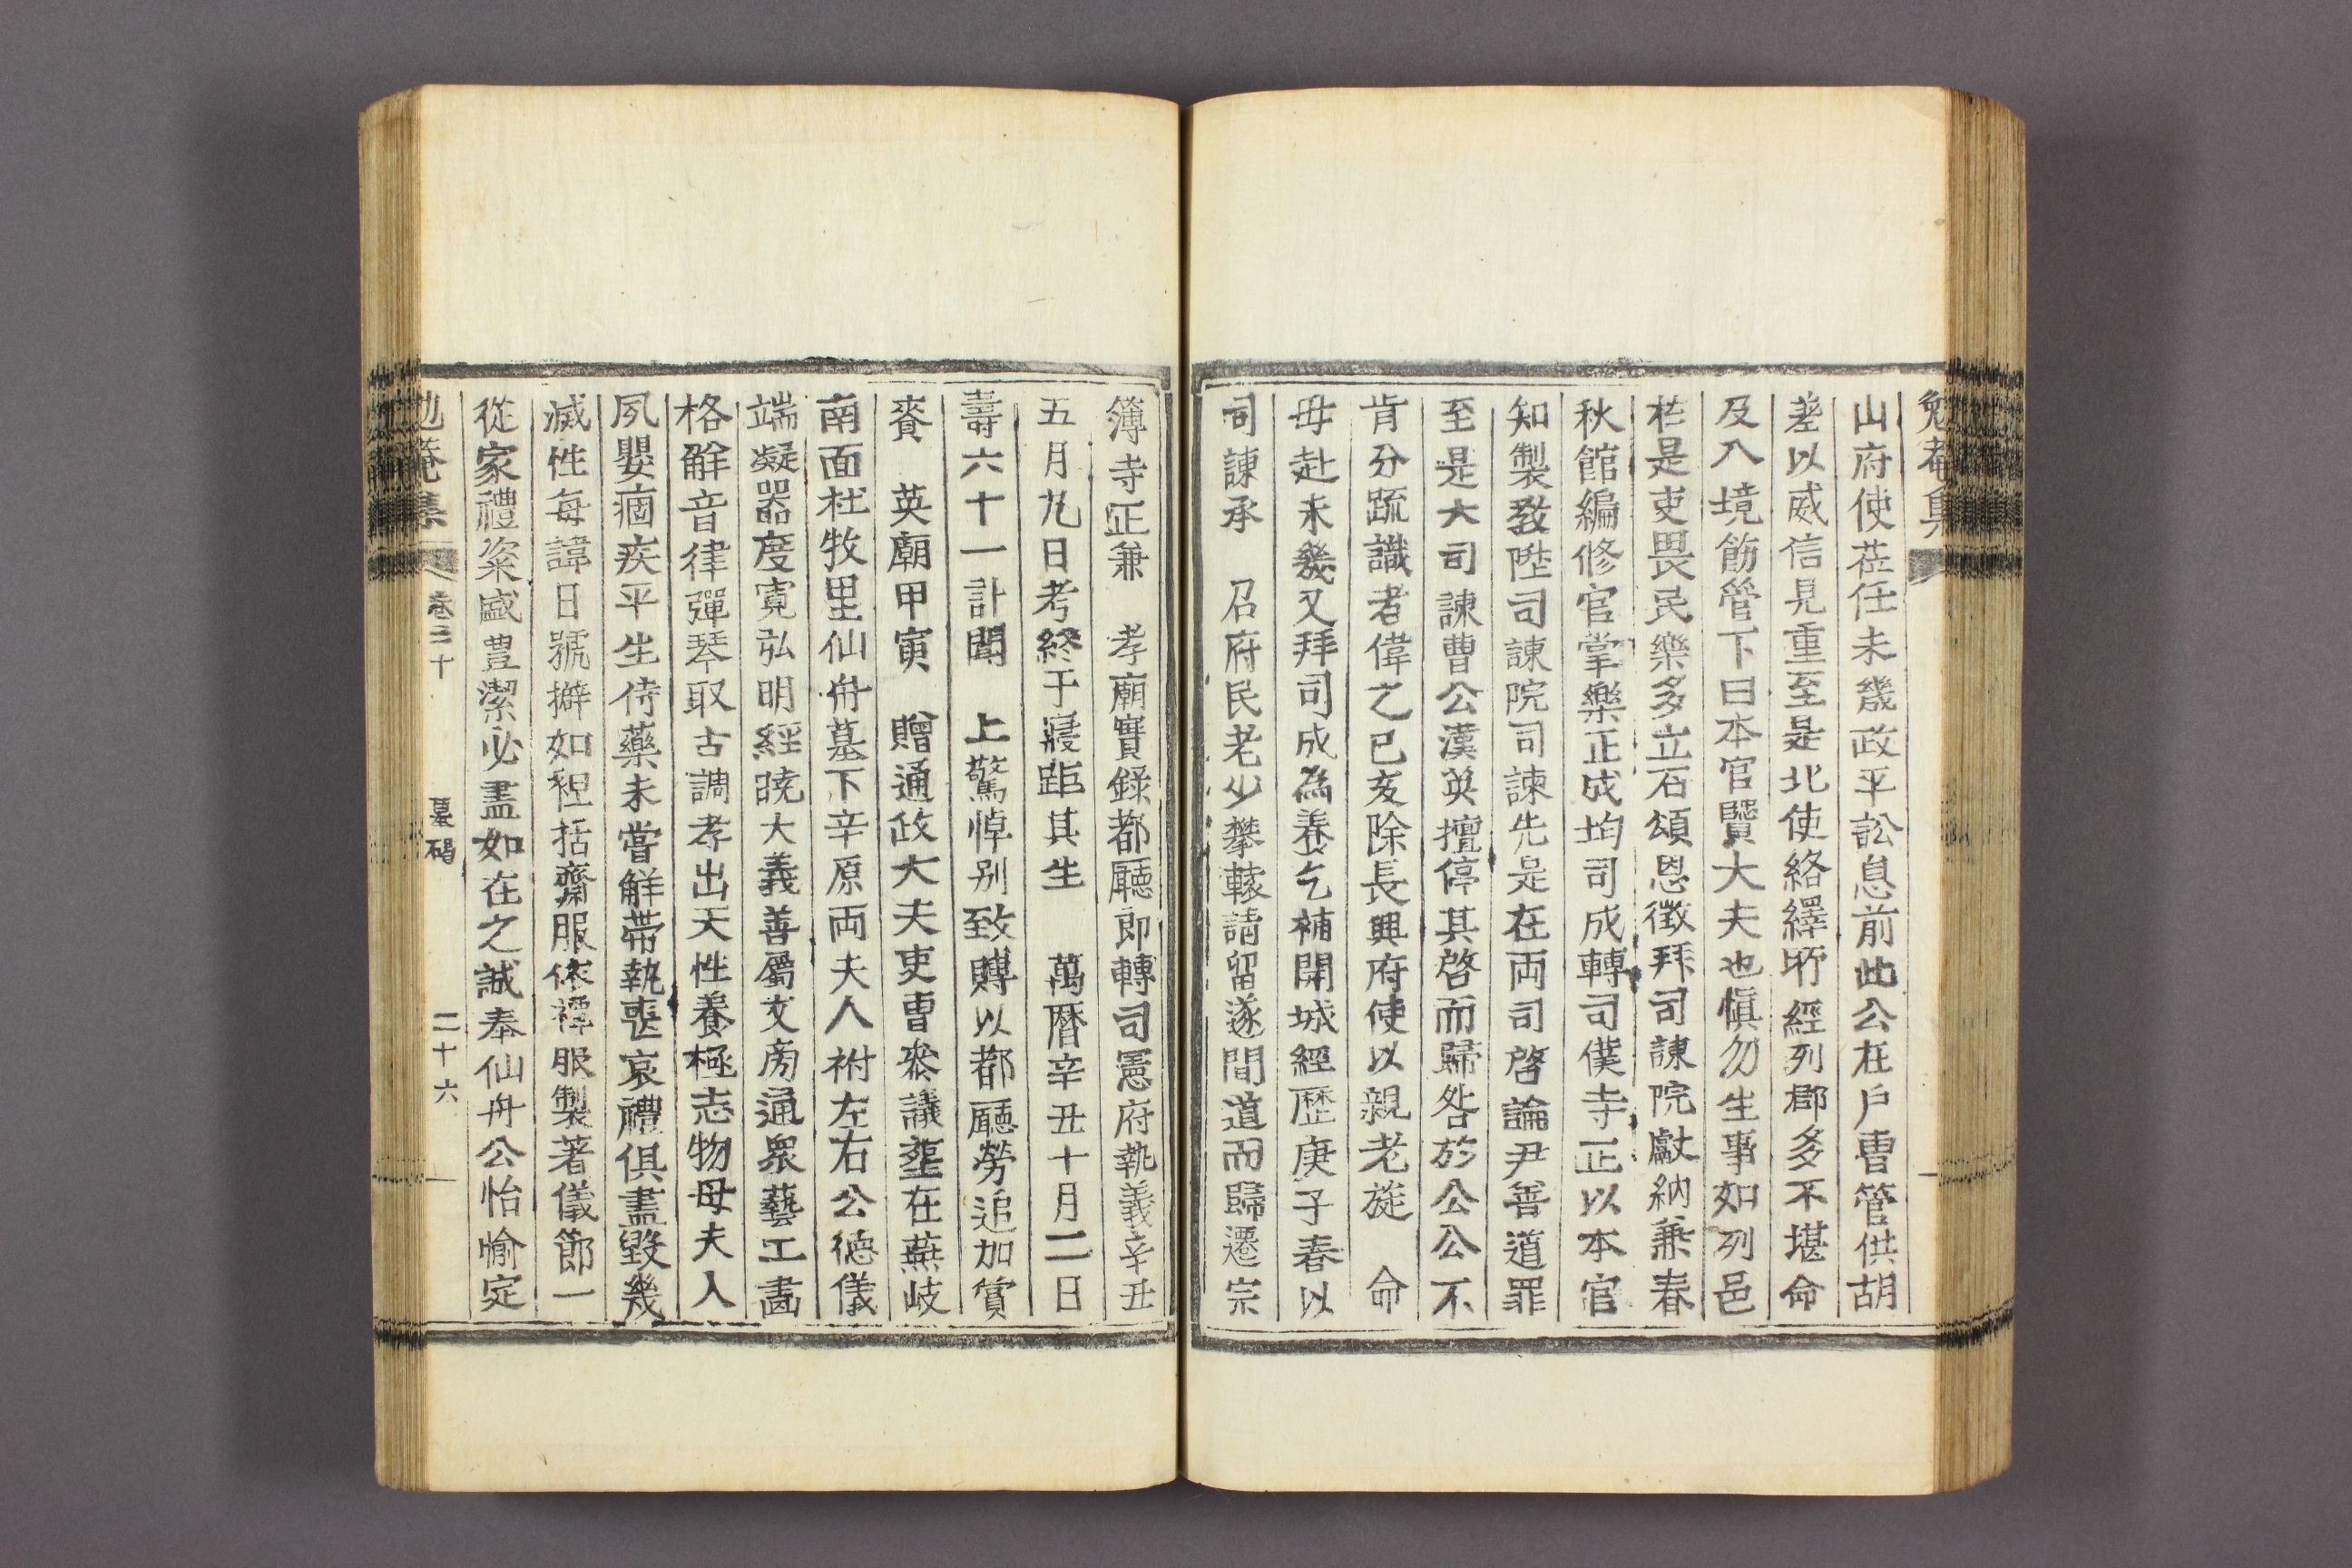 山府使莅任未幾政平訟息前此公在戶曹管供胡
差以威信見重至是北使絡繹所經列郡多不堪命
及入境飭管下曰本官賢大夫也愼勿生事如列邑
於是吏畏民樂多立石頌恩徵拜司諫院獻納兼春
秋館編修官掌樂正成均司成轉司僕寺正以本官
知製敎陞司諫院司諫先是在両司啓論尹善道罪
至是大司諫曹公漢英擅停其啓而歸咎於公公不
肯分疏識者偉之已亥除長興府使以親老旋　命
毋赴未幾又拜司成為養乞補開城經歷庚子春以
司諫承　召府民老少攀轅請留遂間道而歸遷宗
簿寺正兼　孝廟實錄都廳郎轉司憲府執義辛丑
五月九日考終于寢距其生　萬曆辛丑十月二日
壽六十一訃聞　上驚悼别致賻以都廳勞追加賞
賚　英廟甲寅　贈通政大夫吏曹叅議塟在蕪岐
南面杜牧里仙舟墓下辛原両夫人祔左右公德儀
端凝器度寬弘明經曉大義善屬文旁通衆藝工畵
格觧音律彈琴取古調孝出天性養極志物母夫人
夙嬰痼疾平生侍藥未嘗解帶執喪哀禮俱盡毀幾
滅性每諱日號擗如袒括齋服依禫服製著儀節一
從家禮粢盛豊潔必盡如在之誠奉仙舟公怡愉定
勉菴集　卷三十　墓碣　二十六